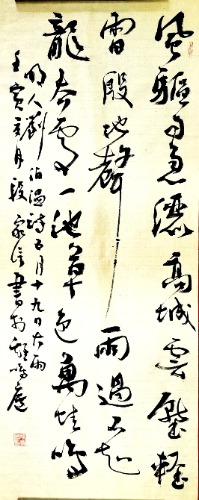 風驅雨急灑高城雲壓輕
雷殷地聲雨過不知
龍去處一池草色萬蛙鳴
明人劉伯溫詩五月十九日大雨
壬寅月段家信書於鳴廬